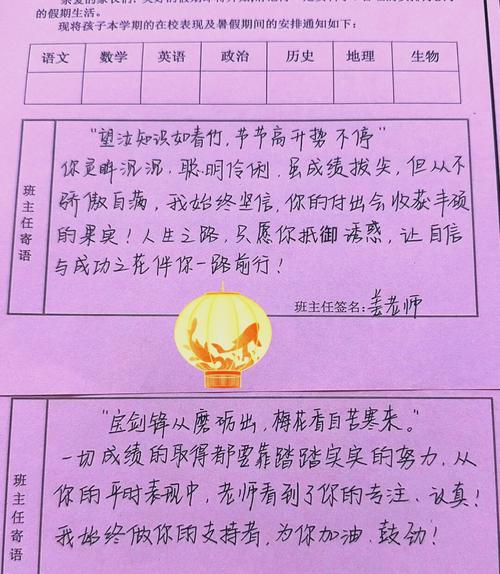 的假期生活。
现将孩子本学期的在校表现及暑假期间的安排通知如下：
语文 数学 英语 政治 历史 地理 生物
班主任寄语
"望汝知识如春竹，节节高升势不停"
你灵眸沉沉，聪明伶俐，虽成绩拔尖，但从不
骄傲自满，我始终坚信，你的付出会收获丰硕
的果实！人生之路，只愿你抵御诱惑，让自信
与成功之花伴你一路前行！
班主任签名：姜老师
班主任寄语
"宝剑锋从磨砺出，梅花香自苦寒来。"
一切成绩的取得都要靠踏踏实实的努力，从
你的平时表现中，老师看到了你的专注、认真！
我始终做你的支持者，为你加油、鼓劲！